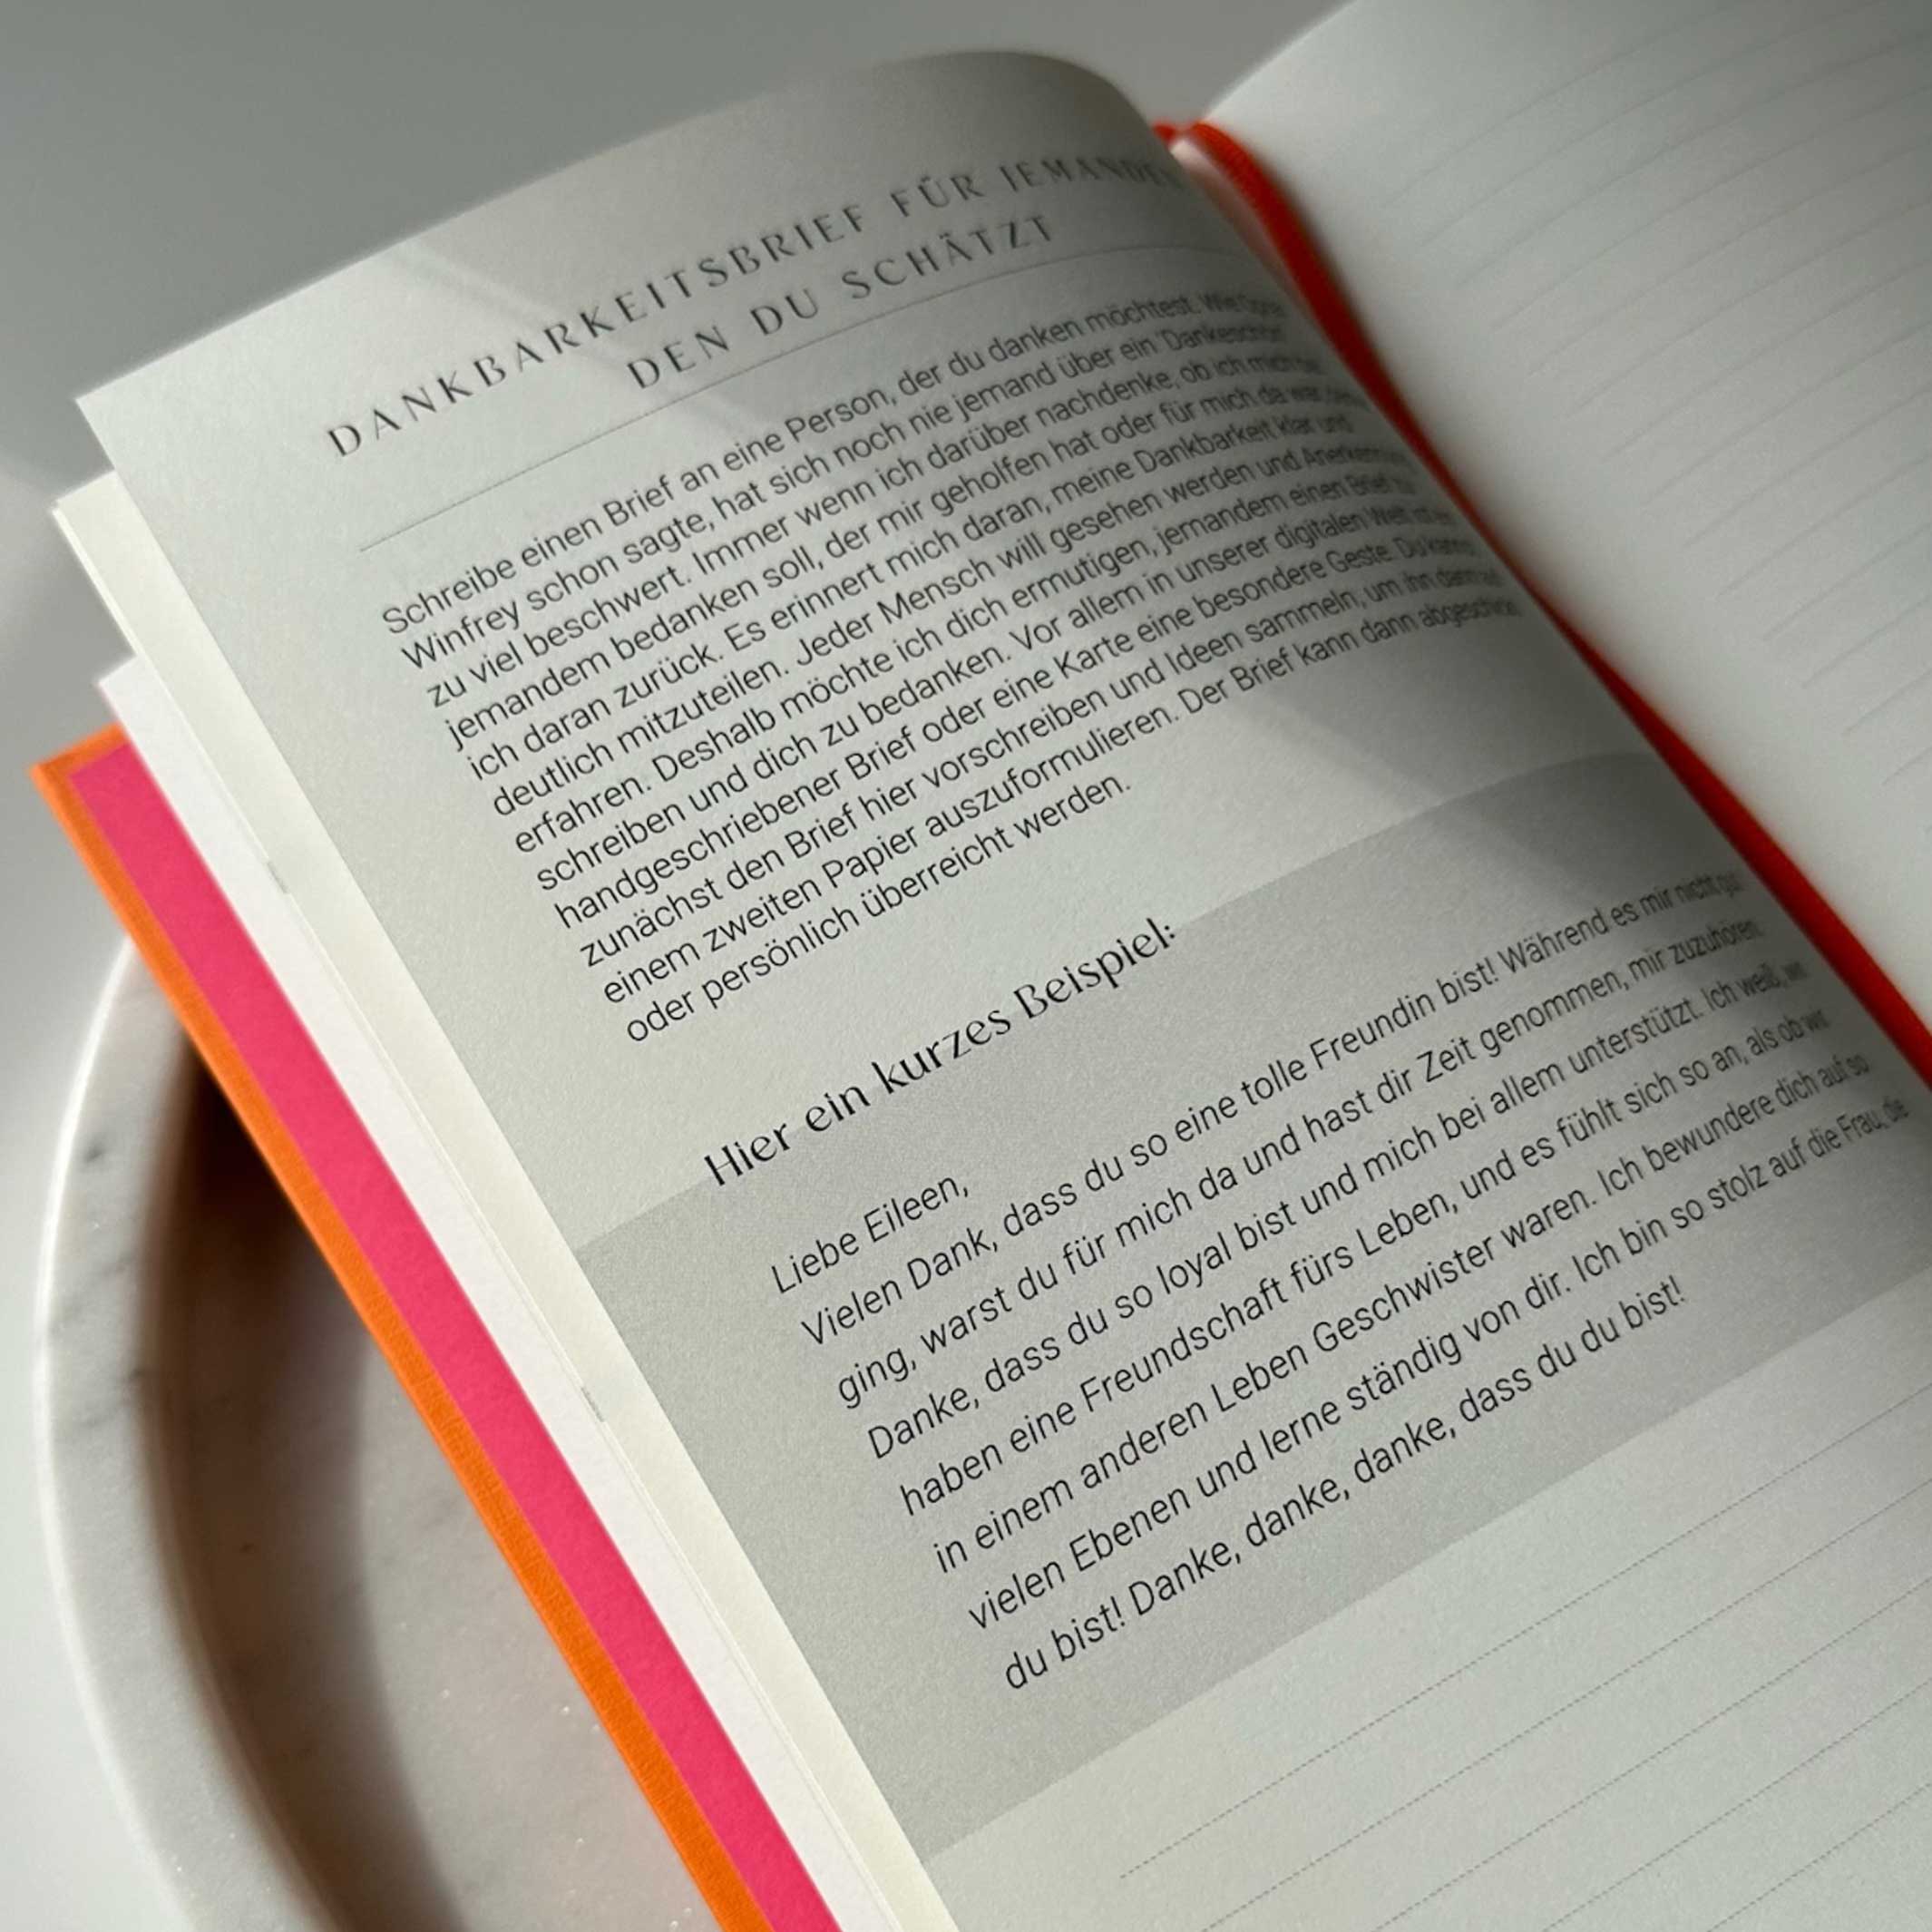 DANKBARKEITSBRIEF FÜR JEMANDEN
DEN DU SCHÄTZT
Schreibe einen Brief an eine Person, der du danken möchtest. Wie Oprah
Winfrey schon sagte, hat sich noch nie jemand über ein "Dankeschön"
zu viel beschwert. Immer wenn ich darüber nachdenke, ob ich mich bei
jemandem bedanken soll, der mir geholfen hat oder für mich da war,
ich daran zurück. Es erinnert mich daran, meine Dankbarkeit klar und
deutlich mitzuteilen. Jeder Mensch will gesehen werden und Anerkennung
erfahren. Deshalb möchte ich dich ermutigen, jemandem einen Brief zu
schreiben und dich zu bedanken. Vor allem in unserer digitalen Welt ist ein
handgeschriebener Brief oder eine Karte eine besondere Geste. Du kannst
zunächst den Brief hier vorschreiben und Ideen sammeln, um ihn dann auf
einem zweiten Papier auszuformulieren. Der Brief kann dann abgeschickt
oder persönlich überreicht werden.
Hier ein kurzes Beispiel:
Liebe Eileen,
Vielen Dank, dass du so eine tolle Freundin bist! Während es mir nicht gut
ging, warst du für mich da und hast dir Zeit genommen, mir zuzuhören.
Danke, dass du so loyal bist und mich bei allem unterstützt. Ich weiß, wir
haben eine Freundschaft fürs Leben, und es fühlt sich so an, als ob wir
in einem anderen Leben Geschwister waren. Ich bewundere dich auf so
vielen Ebenen und lerne ständig von dir. Ich bin so stolz auf die Frau, die
du bist! Danke, danke, danke, dass du du bist!